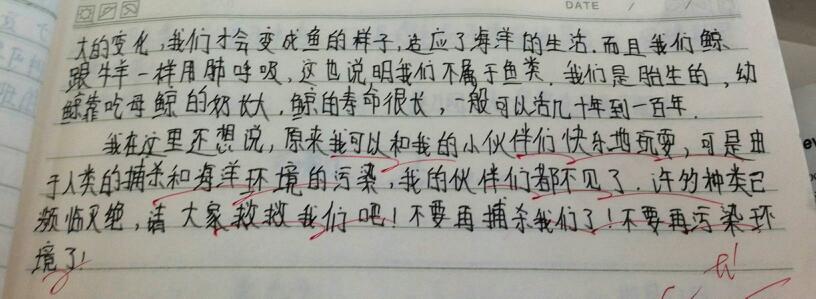 DATE / /
大的变化,我们才会变成鱼的样子,适应了海洋的生活.而且我们鲸
跟牛羊一样用肺呼吸,这也说明我们不属于鱼类.我们是胎生的,幼
鲸靠吃母鲸的奶长大.鲸的寿命很长,一般可以活几十年到一百年.
我在这里还想说,原来我可以和我的小伙伴们快乐地玩耍,可是由
于人类的捕杀和海洋环境的污染,我的伙伴们都不见了.许多种类已
濒临灭绝,请大家救救我们吧!不要再捕杀我们了!不要再污染环
境了!